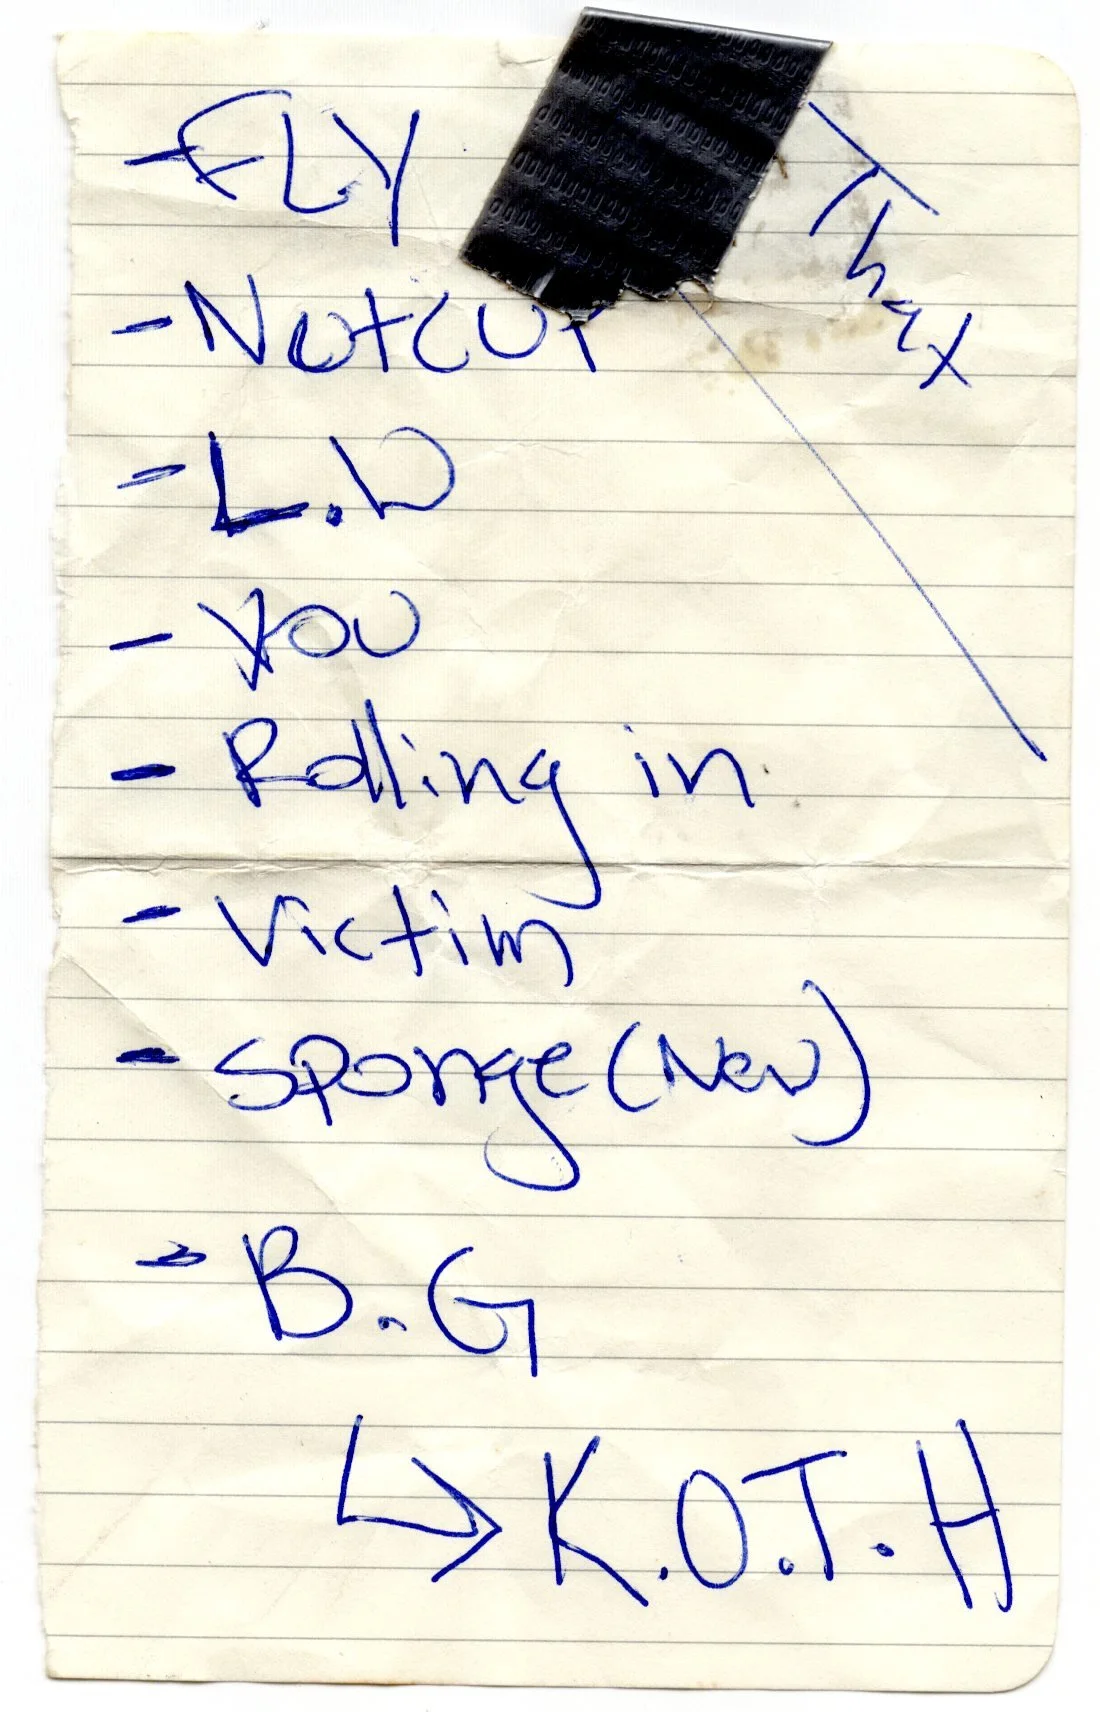 - FLY
That
- Notcut
- L.D
- You
- Rolling in
- Victim
- Sponge (New)
- B.G
K.O.T.H